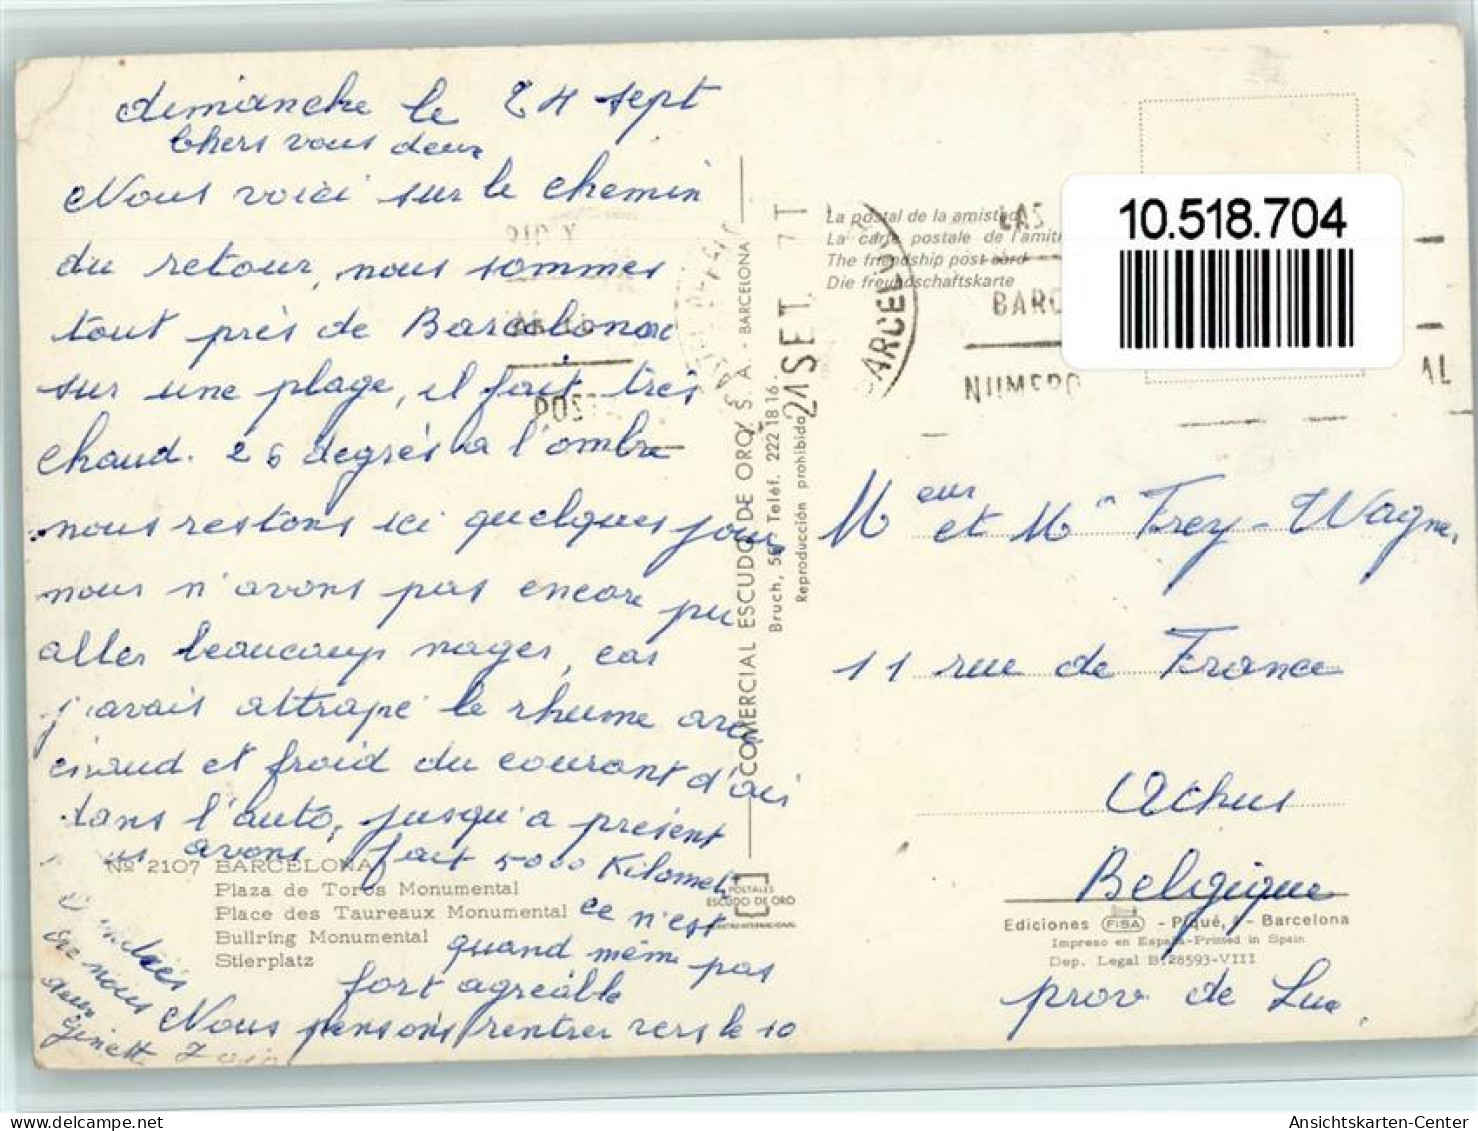 dimanche le 24 sept
Chers vous deux
Nous voici sur le chemin
du retour, nous sommes
tout près de Barcelonae
sur une plage, il fait très
chaud. 26 degrés a l'ombre
nous restons ici quelques jours
nous n'avons pas encore pu
aller beaucoup nager, car
j'avais attrapé le rhume avec
chaud et froid du courant d'air
dans l'auto, jusqu'a présent
nous avons fait 5000 Kilomet
ce n'est
quand même pas
fort agréable
Nous pensons rentrer vers le 10
nous
deux
Ginett
Nº 2107 BARCELONA
Plaza de Toros Monumental
Place des Taureaux Monumental
Bullring Monumental
Stierplatz
COMERCIAL ESCUDO DE ORO, S. A. - BARCELONA
Bruch, Teléf. 222 18 16
Reproducción prohibida
POSTALES
ESCUDO DE ORO
21 SET. 71
BARCELO
La postal de la amistad
La carte postale de l'amiti
The friendship post card
Die freundschaftskarte
LAS
BARC
NUMERO
AL
10.518.704
Meur et Mm Frey-Wagne,
11 rue de France
Athus
Belgique
prov. de Lux.
Ediciones FISA - Piqué, - Barcelona
Impreso en España-Printed in Spain
Dep. Legal B. 28593-VIII
Ansichtskarten-Center